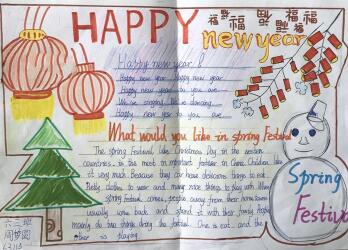 HAPPY
福 福 福 福 福
new year
Happy new year!
Happy new year Happy new year
Happy new year to you are
We are singing We're dancing
Happy new year to you are
What would you like in spring Festival
The spring Festival, like Christmas Day in the western
countries, is the most important in China. Children like
it very much Because they can have delicious things to eat.
Pretty clothes to wear and many nice things to play with. When
spring Festival comes, people away from their home towns
usually come back and spend it with their family. People
mainly do two things during the festival. One is eat and the
other is playing.
Spring
Festival
六三班